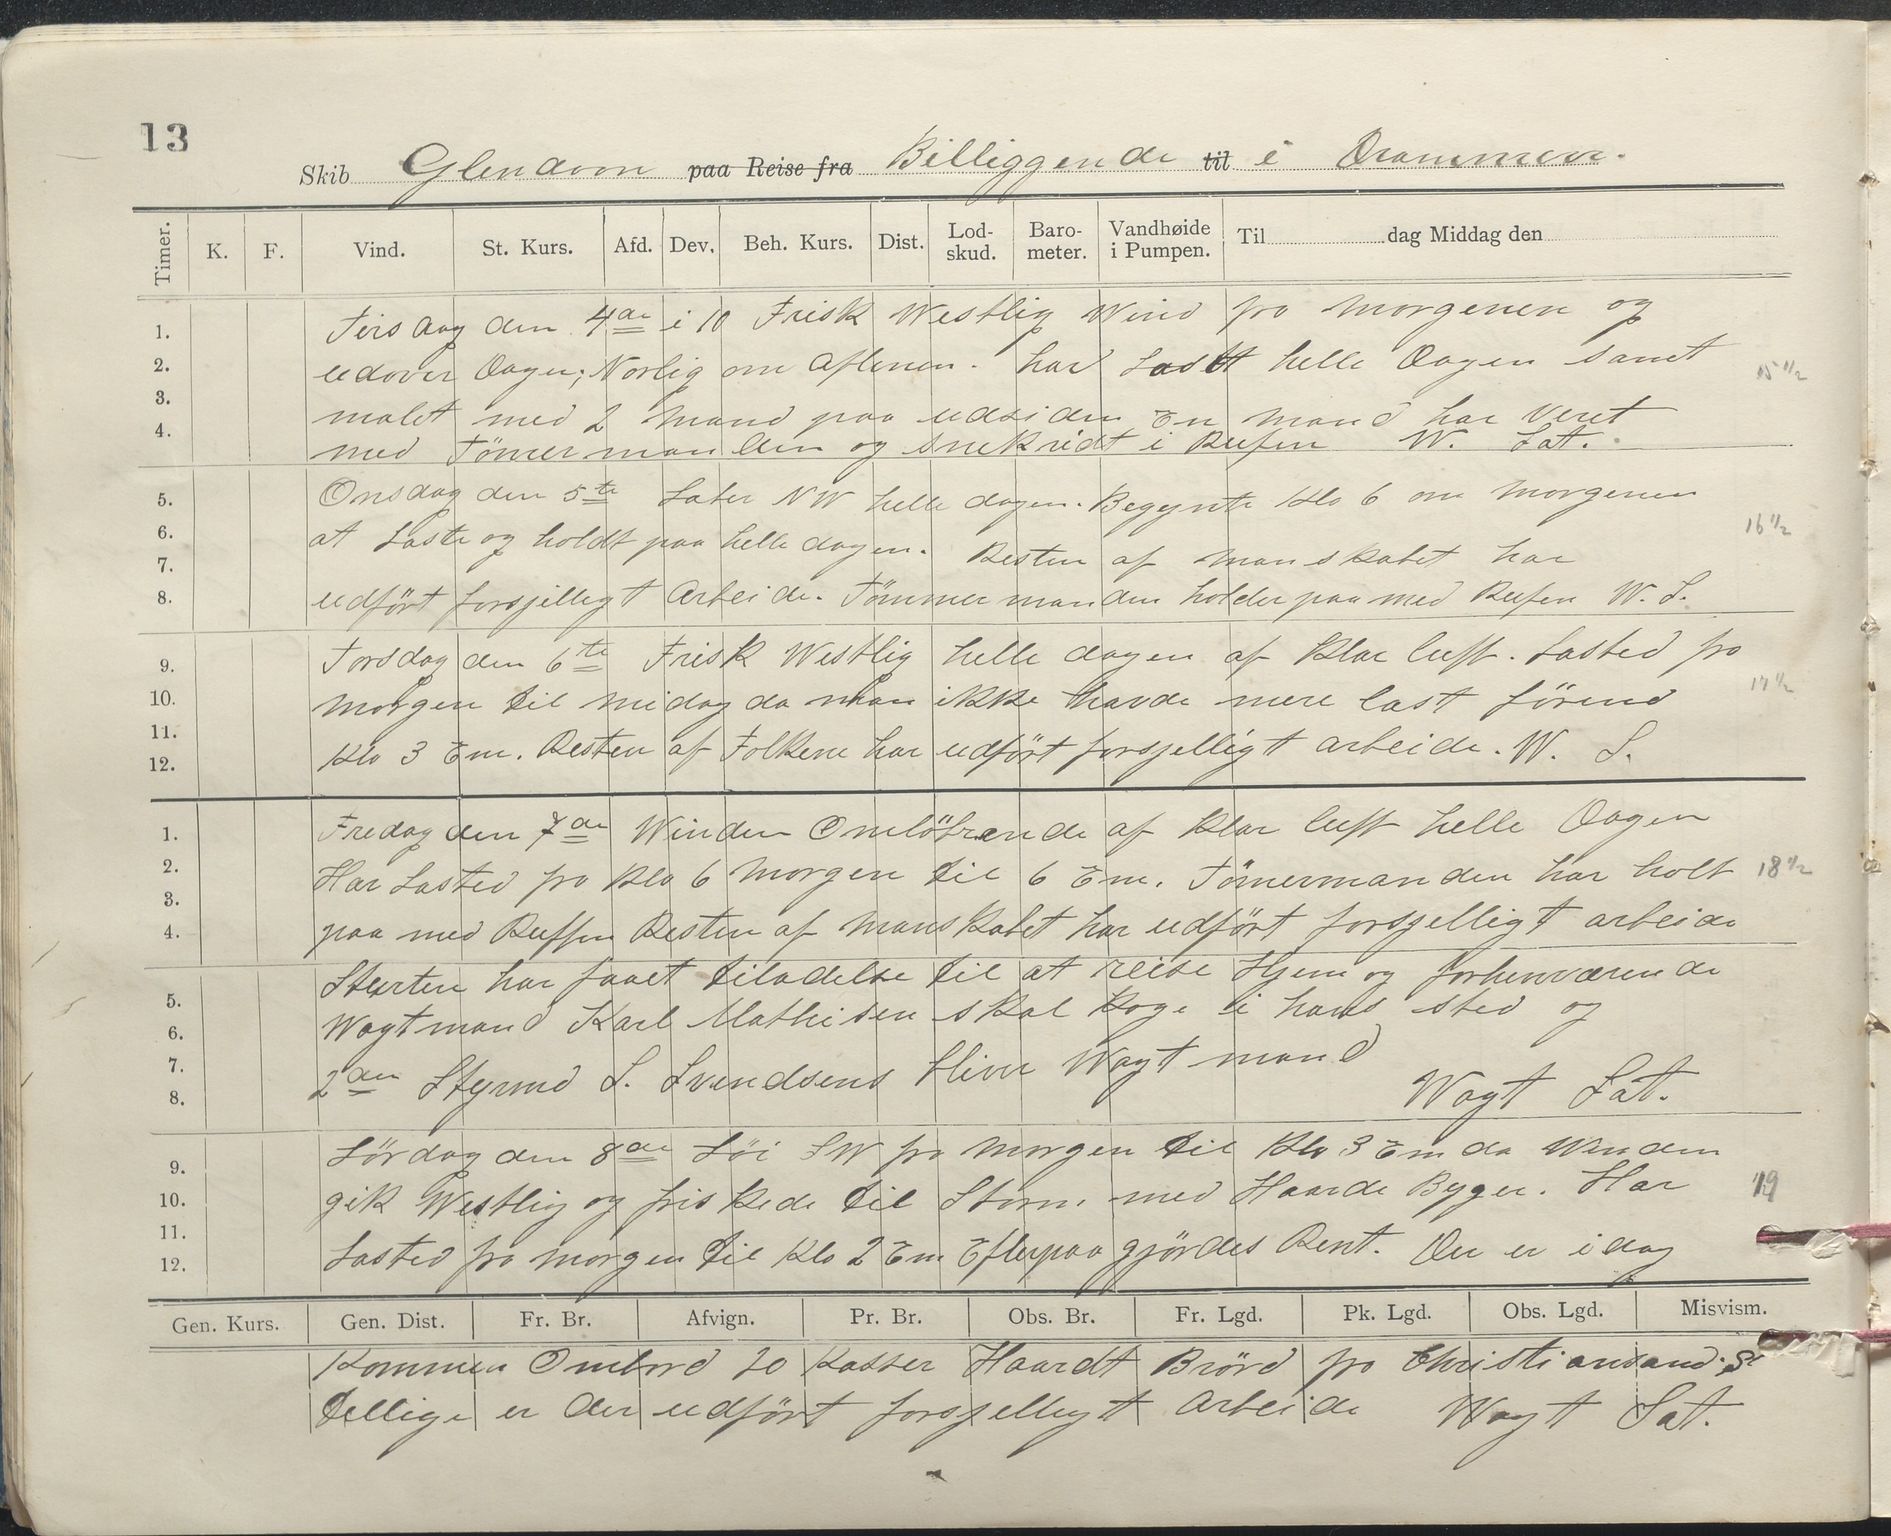 13
Skib Glendoon paa Reise fra Billiggende til i Drammen.
Timer. K. F. Vind. St. Kurs. Afd. Dev. Beh. Kurs. Dist. Lod-skud. Baro-meter. Vandhøide i Pumpen. Til dag Middag den
1. Tirsdag den 4de i 10 Frisk Westlig Wind fra morgenen og
2. udover Dagen; Norlig om Aftenen. har Lastt helle Dagen samt 15 1/2
3. malet med 2 mand paa udsiden En mand har Veret
4. med Tömermanden og snekridt i Rufen W. Sat.
5. Onsdag den 5te Laber NW helle dagen. Begynte Klo 6 om morgenen
6. at Laste og holdt paa helle dagen. Resten af manskabet har 16 1/2
7.
8. udfört forsjelligt Arbeide. Tömmermanden holder paa med Rufen W. S.
9. Torsdag den 6te Frisk Westlig helle dagen af Klar luft. Lasted fra
10. morgen til midag da man ikke havde mere last förend 17 1/2
11.
12. Klo 3 Em. Resten af Folkene har udfört forsjelligt arbeide. W. S.
1. Fredag den 7de Winden Omlöbende af Klar luft helle Dagen
2. Har Lasted fra Klo 6 morgen til 6 Em. Tömermanden har holt 18 1/2
3.
4. paa med Ruffen Resten af manskabet har udfört forsjelligt arbeide
5. Stuerten har faaet tiladelse til at reise Hjem og forhenværende
6. Wagtmand Karl Mathisen skal koge i hans sted og
7. 2den Styrmd S. Svendsens bliver Wagtmand
8. Wagt Sat.
9. Lördag den 8de Löi SW fra morgen til Klo 3 Em da Winden
10. gik Westlig og friskede til Storm med Haarde Byger. Har 19
11.
12. Lasted fra morgen til Klo 2 Em Efterpaa gjördes Rent. Der er idag
Gen. Kurs. Gen. Dist. Fr. Br. Afvign. Pr. Br. Obs. Br. Fr. Lgd. Pk. Lgd. Obs. Lgd. Misvism.
Kommen Ombord 20 Kasser Haardt Bröd fra Christiansand. S
tillige er der udfört forsjelligt Arbeide Wagt Sat.